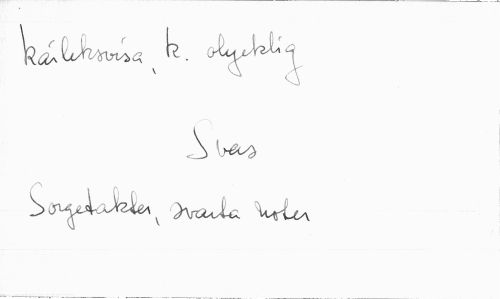 kärleksvisa, k. olycklig
Svas
Sorgetakter, svarta noter